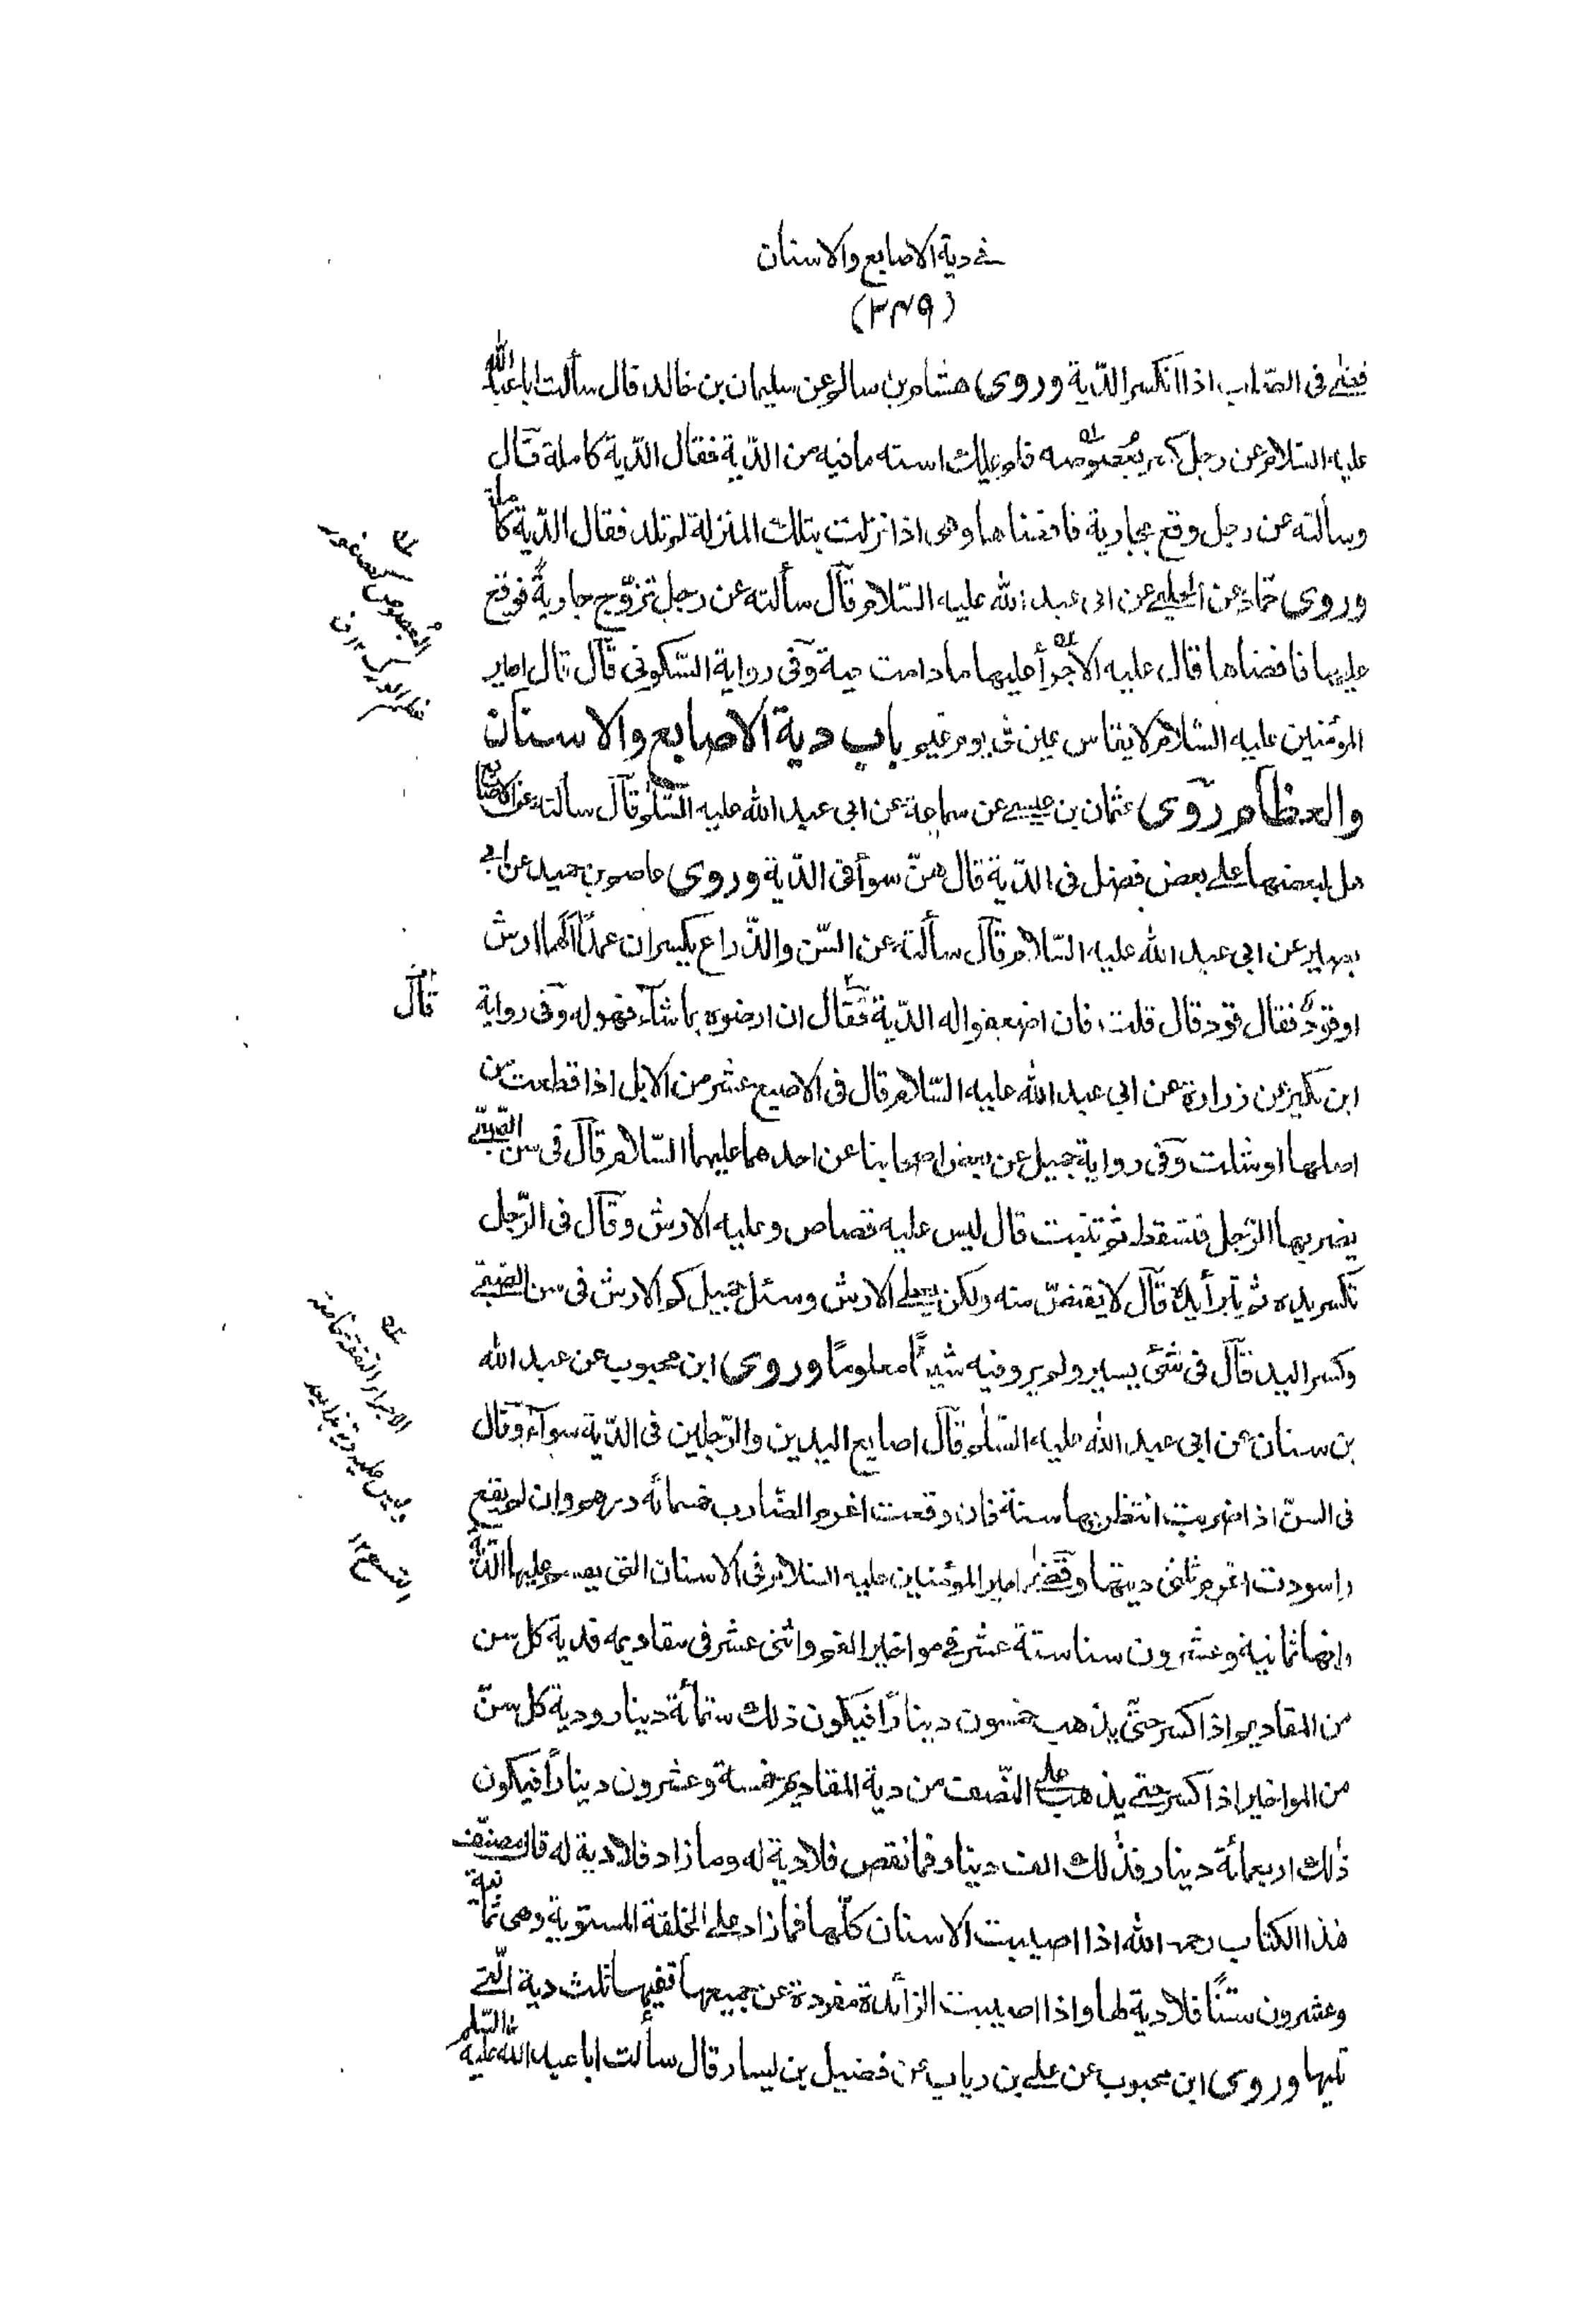 في دية الاصابع والاسنان
(٣٤٩)
قضى فى الصلب اذا انكسر الدّية وروى هشام بن سالم عن سليمان بن خالد قال سألت ابا عبد الله
عليه السّلام عن رجل كسر بعصوصه فلم يملك استه ما فيه من الدّية فقال الدّية كاملة قال
وسألته عن رجل وقع بجارية فافضاها وهى اذا نزلت بتلك المنزلة لم تلد فقال الدّية كاملة
وروى حمّاد عن الحلبي عن ابى عبد الله عليه السّلام قال سألته عن رجل تزوّج جارية فوقع
عليها فافضاها قال عليه الاجراء عليها ما دامت حية وفى رواية السّكونى قال قال امير
المؤمنين عليه السّلام لا يقاس عين فى يوم غيم باب دية الاصابع والاسنان
والعظام روى عثمان بن عيسى عن سماعة عن ابى عبد الله عليه السّلم قال سألته عن الاصابع
هل لبعضها على بعض فضل فى الدّية قال هنّ سوأ فى الدّية وروى عاصم بن حميد عن ابى
بصير عن ابى عبد الله عليه السّلام قال سألته عن السّن والذّراع يكسران عمدًا الهما ارش
او قود فقال قود قال قلت فان اضعفوا له الدّية فقال ان ارضوه بما شآء فهو له وفى رواية
قال
ابن بكير عن زرارة عن ابى عبد الله عليه السّلام قال فى الاصبع عشر من الابل اذا قطعت من
اصلها او شلت وفى رواية جميل عن بعض اصحابنا عن احدهما عليهما السّلام قال فى سن الصّبى
يضربها الرّجل فتسقط ثم تنبت قال ليس عليه قصاص وعليه الارش وقال فى الرّجل
تكسر يده ثم تبرأ يده قال لا يقتصّ منه ولكن يعطى الارش وسئل جميل كم الارش فى سن الصّبى
وكسر اليد قال فى شئ يسير ولم يرو فيه شيئًا معلومًا وروى ابن محبوب عن عبد الله
بن سنان عن ابى عبد الله عليه السّلم قال اصابع اليدين والرّجلين فى الدّية سوآء وقال
فى السنّ اذا ضربت انتظر بها سنة فان وقعت اغرم الضّارب خمسمائه درهم وان لم يقع
واسودت اغرم ثلثى ديتها وقضى امير المؤمنين عليه السّلام فى الاسنان التى يقسم عليها الدّية
انها ثمانية وعشرون سنا ستة عشر في مواخير الفم واثنى عشر فى مقاديمه فدية كل سن
من المقاديم اذا كسر حتّى يذهب خمسون دينارًا فيكون ذلك ستمأئة دينار ودية كل سنّ
من المواخير اذا كسر حتى يذهب على النّصف من دية المقاديم خمسة وعشرون دينارًا فيكون
ذلك اربعمائة دينار فذلك الف دينار فما نقص فلا دية له وما زاد فلا دية له قال مصنّف
هذا الكتاب رحمه الله اذا اصيبت الاسنان كلّها فما زاد على الخلقة المستوية وهى ثمانية
وعشرون سنًّا فلا دية لها واذا اصيبت الزائدة مفردة عن جميعها ففيها ثلث دية الّتى
تليها وروى ابن محبوب عن على بن رياب عن فضيل بن يسار قال سألت ابا عبد الله عليه السّلم